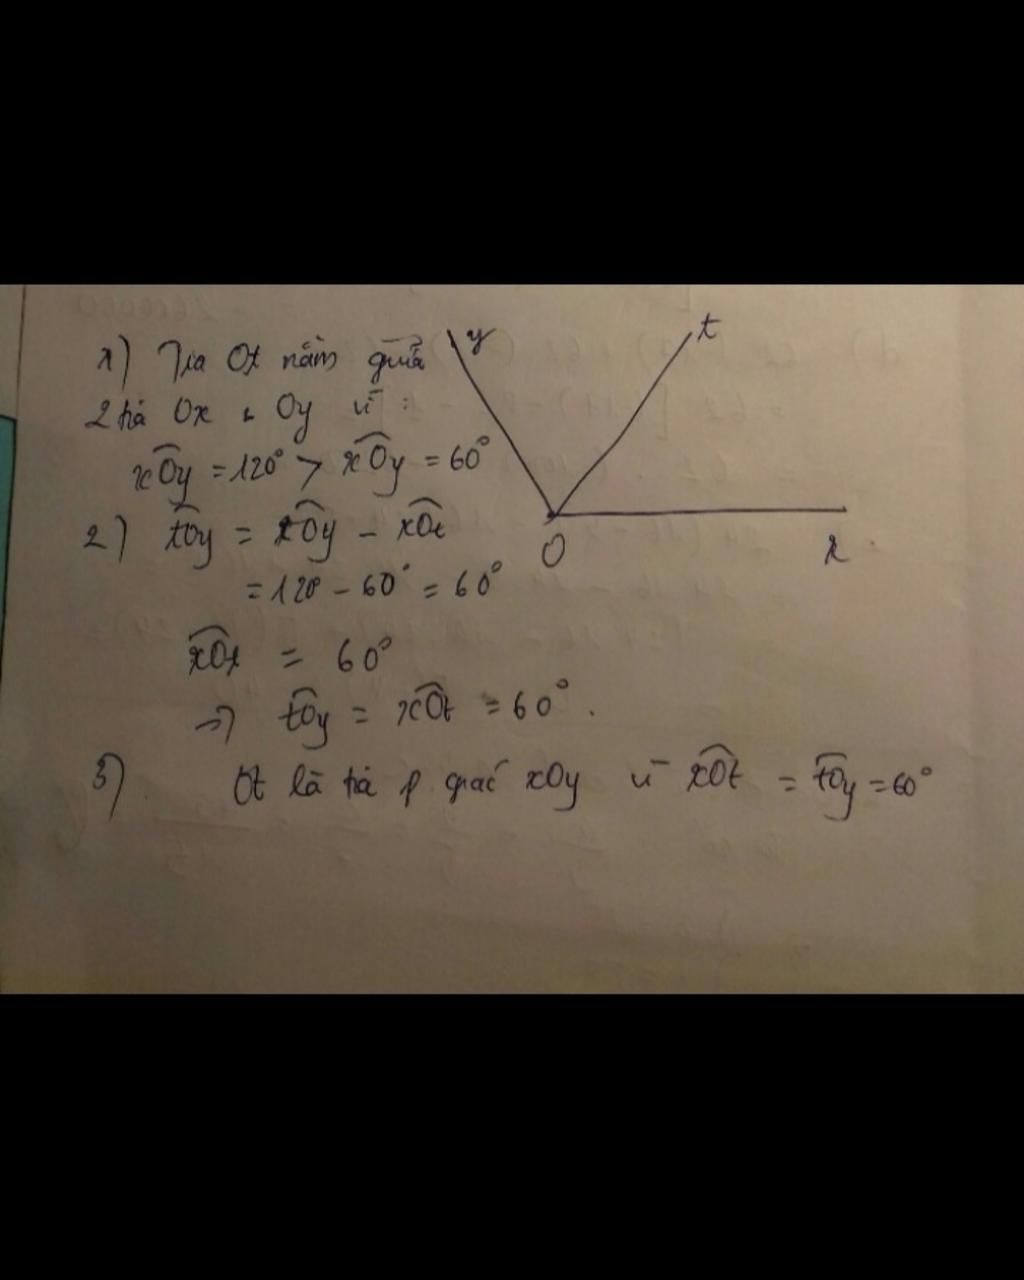 1) Tia Ot nằm giữa
2 tia Ox & Oy vì :
xOy = 120° > xOy = 60°
2) tOy = xOy - xOt
= 120 - 60° = 60°
xOt = 60°
=> tOy = xOt = 60°.
3) Ot là tia p giác xOy vì xOt = tOy = 60°
y
t
O
x